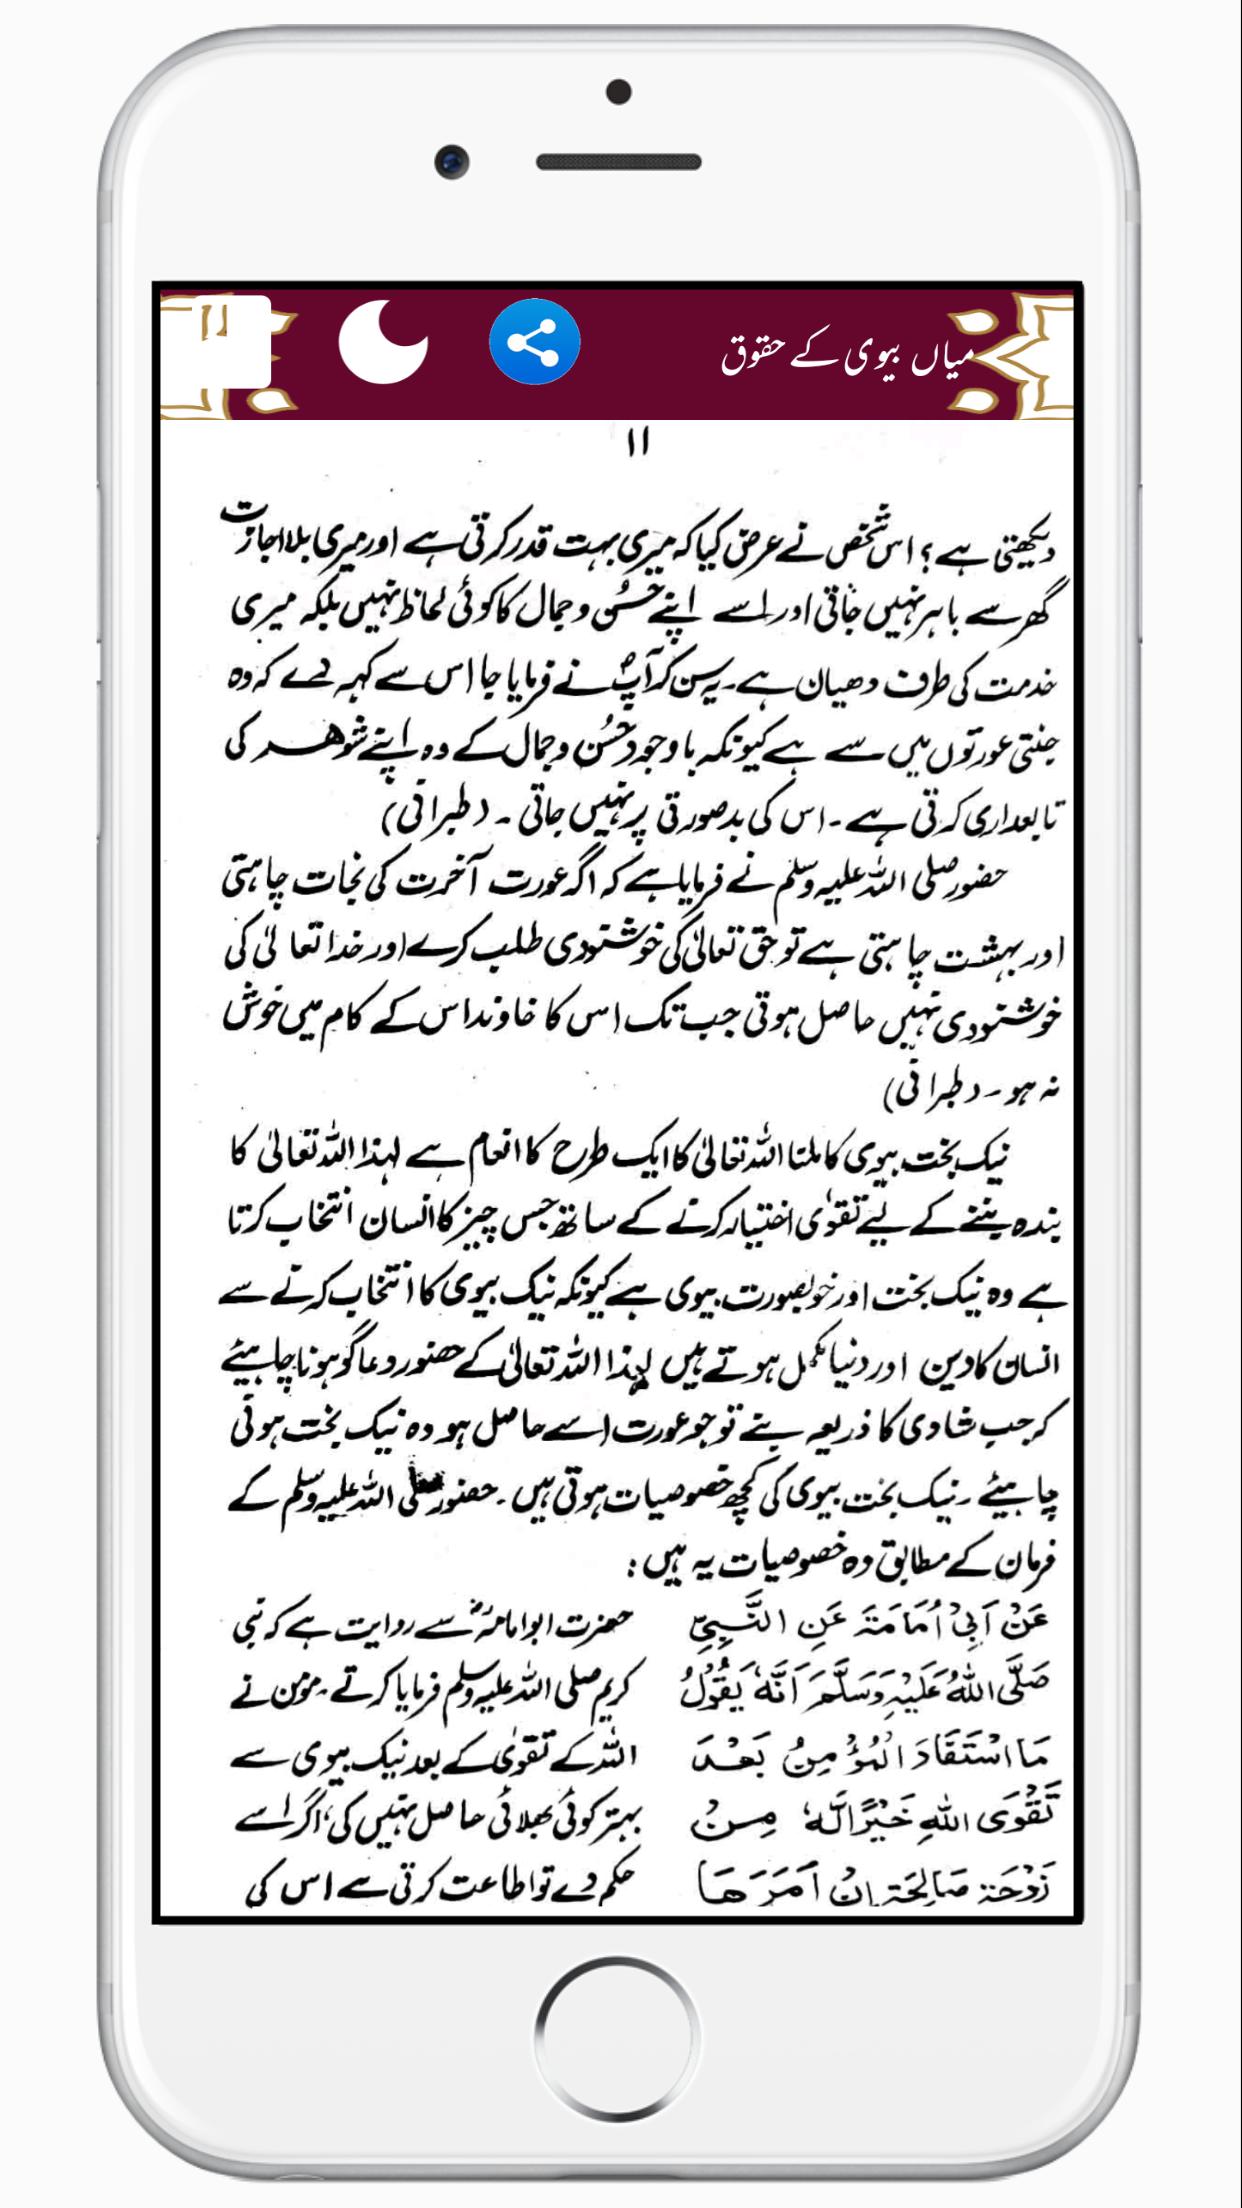 میاں بیوی کے حقوق
۱۱
دیکھتی ہے؟ اس شخص نے عرض کیا کہ میری بہت قدر کرتی ہے اور میری بلا اجازت
گھر سے باہر نہیں جاتی اور اسے اپنے حسُن و جمال کا کوئی لحاظ نہیں بلکہ میری
خدمت کی طرف دھیان ہے۔ یہ سن کر آپؐ نے فرمایا جا اس سے کہہ دے کہ وہ
جنتی عورتوں میں سے ہے کیونکہ باوجود حسُن و جمال کے وہ اپنے شوہر کی
تابعداری کرتی ہے۔ اس کی بدصورتی پر نہیں جاتی ۔ (طبرانی)
حضور صلی اللہ علیہ وسلم نے فرمایا ہے کہ اگر عورت آخرت کی نجات چاہتی
اور بہشت چاہتی ہے تو حق تعالیٰ کی خوشنودی طلب کرے اور خدا تعالیٰ کی
خوشنودی نہیں حاصل ہوتی جب تک اس کا خاوند اس کے کام میں خوش
نہ ہو۔ (طبرانی)
نیک بخت بیوی کا ملنا اللہ تعالیٰ کا ایک طرح کا انعام ہے لہذا اللہ تعالیٰ کا
بندہ بننے کے لیے تقوٰی اختیار کرنے کے ساتھ جس چیز کا انسان انتخاب کرتا
ہے وہ نیک بخت اور خوبصورت بیوی ہے کیونکہ نیک بیوی کا انتخاب کرنے سے
انسان کا دین اور دنیا مکمل ہوتے ہیں لہذا اللہ تعالیٰ کے حضور دعا گو ہونا چاہیئے
کہ جب شادی کا ذریعہ بنے تو جو عورت اسے حاصل ہو وہ نیک بخت ہونی
چاہیئے ۔ نیک بخت بیوی کی کچھ خصوصیات ہوتی ہیں ۔ حضور صلی اللہ علیہ وسلم کے
فرمان کے مطابق وہ خصوصیات یہ ہیں :
عَنْ اَبِیْ اُمَامَۃَ عَنِ النَّبِیِّ
صَلَّی اللّٰہُ عَلَیْہِ وَسَلَّمَ اَنَّہٗ یَقُوْلُ
مَا اسْتَفَادَ الْمُؤْمِنُ بَعْدَ
تَقْوَی اللّٰہِ خَیْرًا لَّہٗ مِنْ
زَوْجَۃٍ صَالِحَۃٍ اِنْ اَمَرَھَا
حضرت ابو امامہؓ سے روایت ہے کہ نبی
کریم صلی اللہ علیہ وسلم فرمایا کرتے۔ مومن نے
اللہ کے تقویٰ کے بعد نیک بیوی سے
بہتر کوئی بھلائی حاصل نہیں کی، اگر اسے
حکم دے تو اطاعت کرتی ہے اس کی